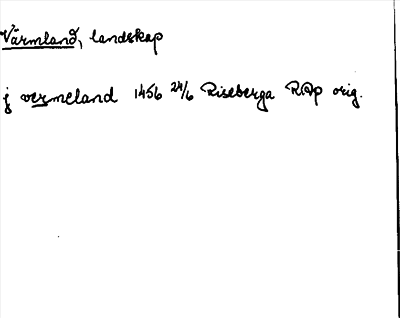 Värmland, landskap
j vermeland 1456 24/6 Riseberga RAp orig.